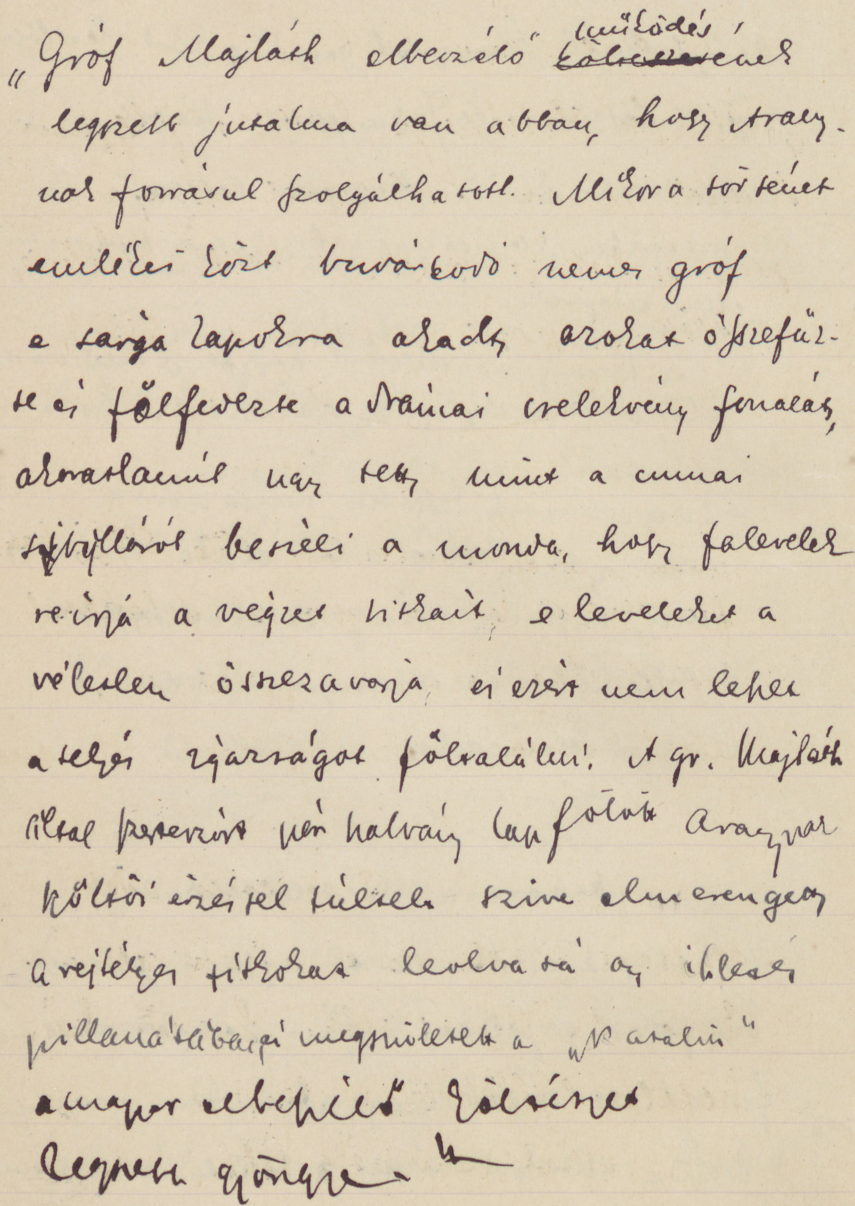 „Gróf Majláth elbeszélő működésének
legszebb jutalma van abban, hogy Arany-
nak forrásul szolgálhatott. Mikor a történet
emlékei közt buvárkodó nemes gróf
e sárga lapokra akadt, azokat összefűz-
te és fölfedezte a drámai cselekvény fonalát,
akaratlanúl úgy tett, mint a cumai
sybilláról beszéli a monda, hogy falevelek
re irja a végzet titkait, e leveleket a
véletlen összezavarja, és ezért nem lehet
a teljes igazságot föltalálni. A gr. Majláth
által szerzett pár halvány lap fölött Arany
költői érzéssel túltelt szive elmerengett,
a rejtélyes titkokat leolvasá az ihletés
pillanatában, és megszületett a „Katalin"
a magyar elbeszélő költészet
legszebb gyöngye."